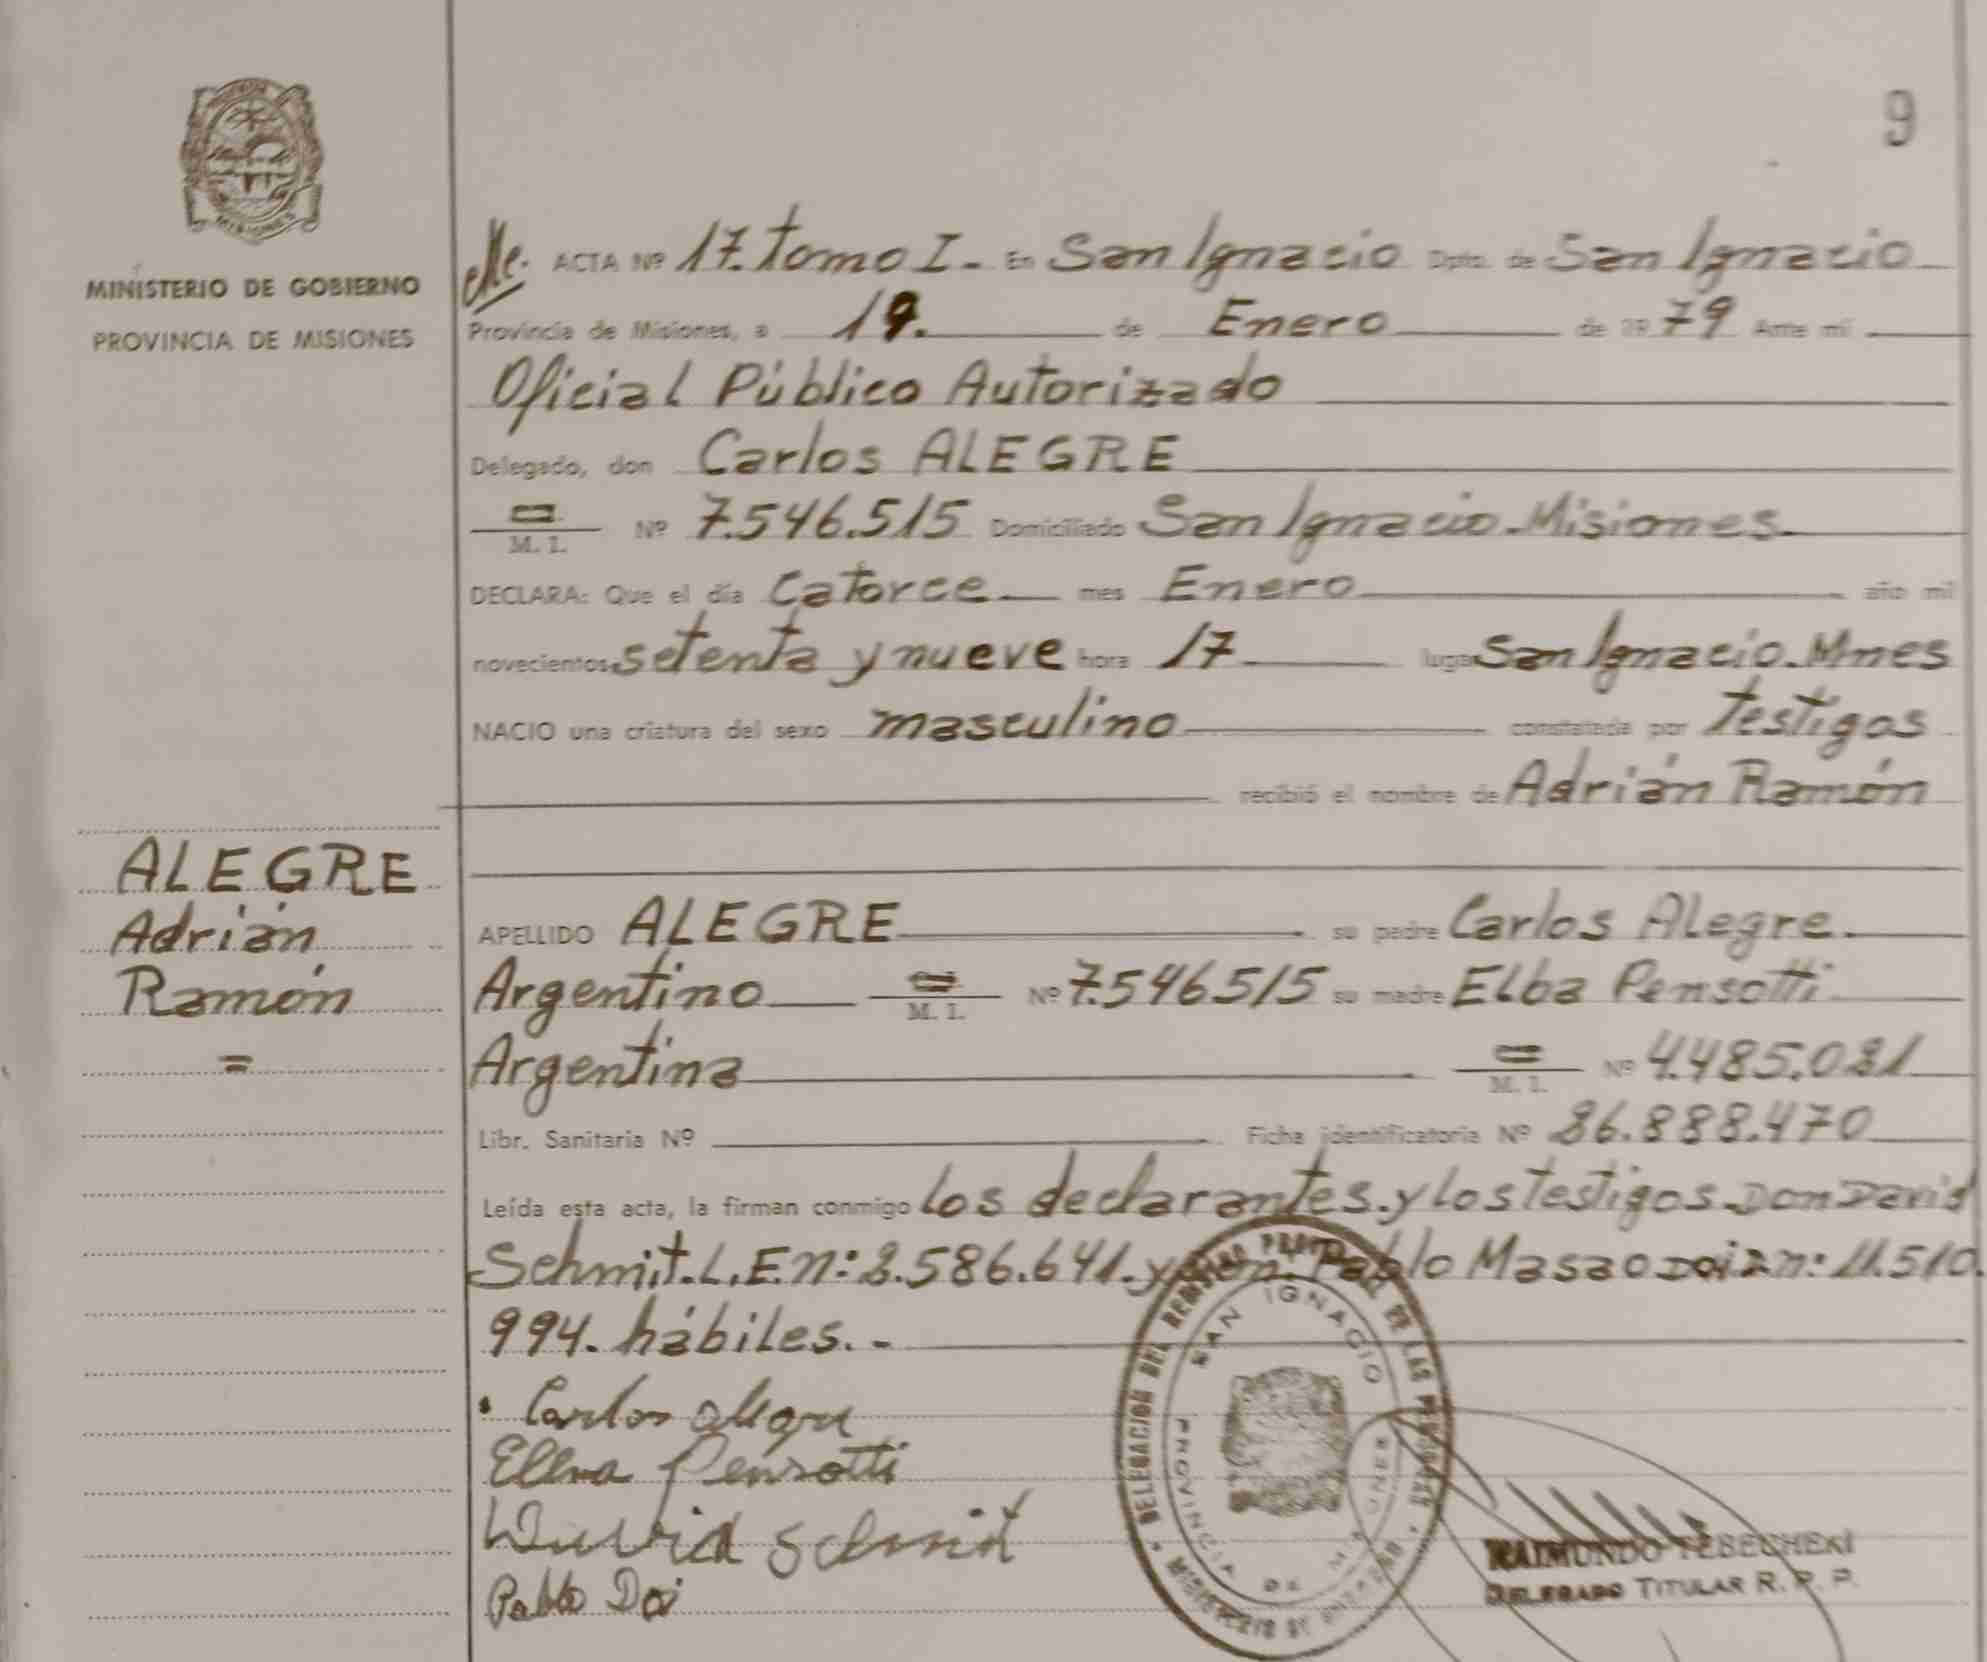 9
MINISTERIO DE GOBIERNO
PROVINCIA DE MISIONES
ACTA Nº 17. Tomo I. En San Ignacio Dpto. de San Ignacio
Provincia de Misiones, a 19. de Enero de 1979 Ante mí
Oficial Público Autorizado
Delegado, don Carlos ALEGRE
M. I. Nº 7.546.515 Domiciliado San Ignacio. Misiones
DECLARA: Que el día Catorce mes Enero año mil
novecientos setenta y nueve hora 17 lugar San Ignacio. Mnes
NACIO una criatura del sexo masculino constatada por Testigos
recibió el nombre de Adrián Ramón
ALEGRE
Adrián
Ramón
=
APELLIDO ALEGRE su padre Carlos Alegre.
Argentino M. I. Nº 7.546515 su madre Elba Pensotti
Argentina M. I. Nº 4.485.031
Libr. Sanitaria Nº Ficha identificatoria Nº 26.888.470
Leída esta acta, la firman conmigo los declarantes. y los testigos. Don David
Schmit. L.E.n: 8.586.641. y don Pablo Masao Doi n: 11.510.
994. hábiles. -
Carlos Alegre
Elba Pensotti
David Schmit
Pablo Doi
DELEGACION DEL REGISTRO PROV. DE LAS PERSONAS
SAN IGNACIO
PROVINCIA DE MISIONES
MINISTERIO DE
RAIMUNDO TEBECHERI
DELEGADO TITULAR R. P. P.